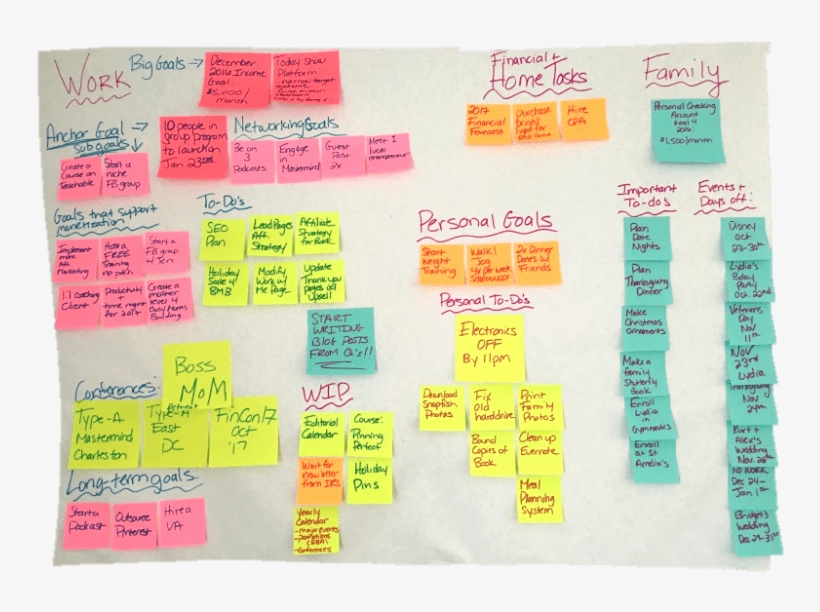 WORK
Big Goals →
December
2016 Income
Goal:
$5,000/
month
Today Show
Platform
Anchor Goal →
subgoals ↓
10 people in
group program
to launch on
Jan 23rd
Networking Goals
Be on
3
Podcasts
Engage
in
Mastermind
Guest
Post
2x
Meet 1
local
entrepreneur
Create a
Course on
Teachable
Start a
niche
FB group
Goals that support
monetization
Implement
more
Aff.
Marketing
Host a
FREE
Training
no pitch
Start a
FB group
1:1 coaching
Client
Productivity
+
time mgmt
for 2017
Create a
master
level 4
Busy Moms
Building
To-Do's
SEO
Plan
Lead Pages
Aff.
Strategy
Affiliate
Strategy
for Book
Holiday
Sale 4
BMB
Modify
Work w/
Me Page
Update
Thank you
pages w/
Upsell
START
WRITING
Blog POSTS
FROM Q's!!
Boss
MoM
Conferences:
Type-A
Mastermind
Charleston
Type-A
East
DC
FinCon17
Oct
'17
Long-term goals:
Start a
Podcast
Outsource
Pinterest
Hire a
VA
WIP
Editorial
Calendar
Course:
Pinning
Perfect
Wait for
new letter
from IRS
Holiday
Pins
Yearly
Calendar
- major events
- promotions
- conferences
Financial +
Home Tasks
2017
Financial
Forecast
Purchase
bright
light for
Hire
CPA
Personal Goals
Start
Weight
Training
Walk/
Jog
4x per week
2x Dinner
Dates w/
Friends
Personal To-Do's
Electronics
OFF
By 11pm
Download
Snapfish
Photos
Fix
old
harddrive
Print
Family
Photos
Bound
Copies of
Book
Clean up
Evernote
Meal
Planning
System
Family
Personal Checking
Account
Goal 4
2016:
$1,500/month
Important
To-do's
Plan
Date
Nights
Plan
Thanksgiving
Dinner
Make
Christmas
Ornaments
Make a
family
Shutterfly
Book
Enroll
Lydia
in
Gymnastics
Enroll
at St
Amelia's
Events +
Days off:
Disney
Oct
23-30th
Lydia's
Bday
Party
Oct. 22nd
Veterans
Day
Nov
11th
Nov
23rd
Lydia
Thanksgiving
Nov
24th
Kurt +
Alex's
Wedding
Nov. 26th
NO WORK
Dec 24-
Jan 1st
Bridget's
Wedding
Dec 29-31st